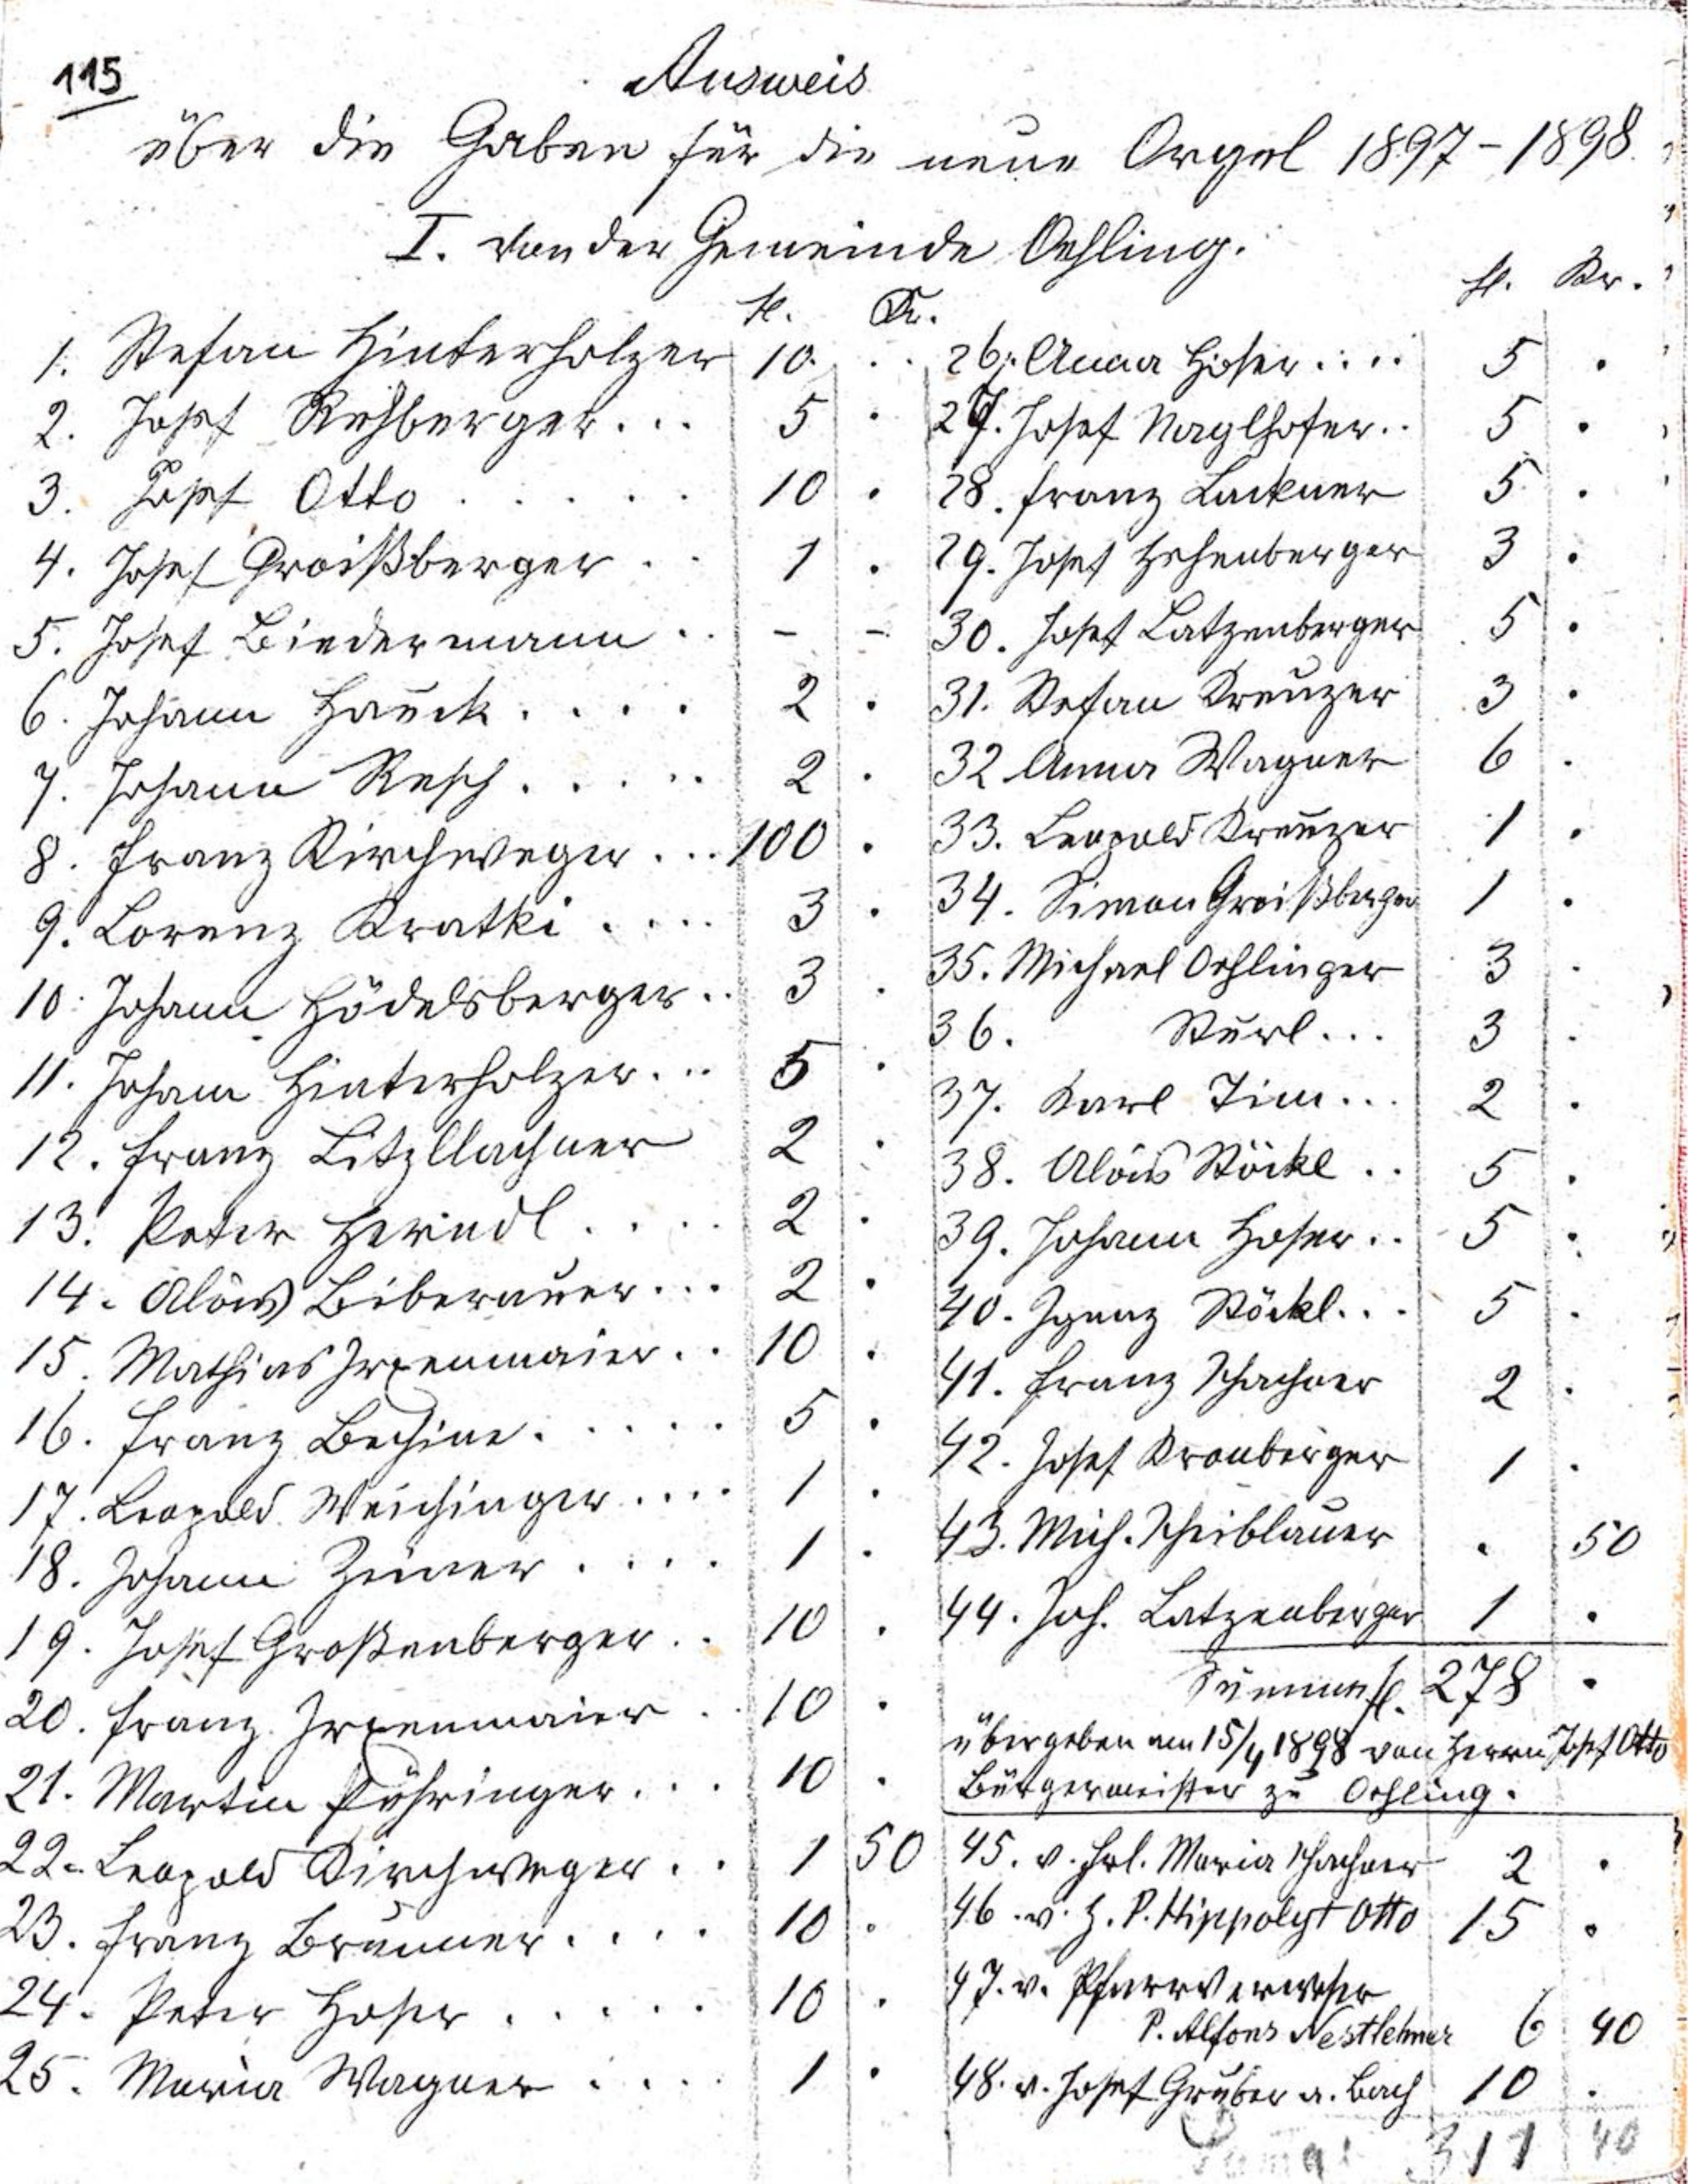 115
Ausweis
über die Gaben für die neue Orgel 1897-1898.
I. von der Gemeinde Oehling.
fl. Kr.
1. Stefan Hinterholzer 10 .
2. Josef Rehberger... 5 .
3. Josef Otto ..... 10 .
4. Josef Groißberger .. 1 .
5. Josef Biedermann .. - -
6. Johann Hauck .... 2 .
7. Johann Resch ..... 2 .
8. Franz Kirchweger ... 100 .
9. Lorenz Kratki .... 3 .
10. Johann Hödelsberger .. 3 .
11. Johann Hinterholzer ... 5 .
12. Franz Litzllachner 2 .
13. Peter Heindl .... 2 .
14. Alois Biberauer ... 2 .
15. Mathias Irxenmaier .. 10 .
16. Franz Bechine ..... 5 .
17. Leopold Weichinger .... 1 .
18. Johann Zeiner .... 1 .
19. Josef Großenberger .. 10 .
20. Franz Irxenmaier .. 10 .
21. Martin Führinger ... 10 .
22. Leopold Kirchweger .. 1 50
23. Franz Brunner .... 10 .
24. Peter Hofer ..... 10 .
25. Maria Wagner .... 1 .
fl. Kr.
26. Anna Hofer .... 5 .
27. Josef Naglhofer .. 5 .
28. Franz Lackner 5 .
29. Josef Hehenberger 3 .
30. Josef Latzenberger 5 .
31. Stefan Kreuzer 3 .
32 Anna Wagner 6 .
33. Leopold Kreuzer 1 .
34. Simon Groißberger 1 .
35. Michael Oehlinger 3 .
36. Sturl ... 3 .
37. Karl Tim ... 2 .
38. Alois Stöckl .. 5 .
39. Johann Hofer .. 5 .
40. Ignaz Stöckl ... 5 .
41. Franz Schachner 2 .
42. Josef Kronberger 1 .
43. Mich. Scheiblauer . 50
44. Joh. Latzenberger 1 .
Summe fl. 278 .
übergeben am 15/4 1898 von Herrn Josef Otto
Bürgermeister zu Oehling.
45. v. Frl. Maria Schachner 2 .
46. v. H. P. Hippolyt Otto 15 .
47. v. Pfarrverweser
P. Alfons Nestlehner 6 40
48. v. Josef Gruber a. Bach 10 .
Suma: 311 40